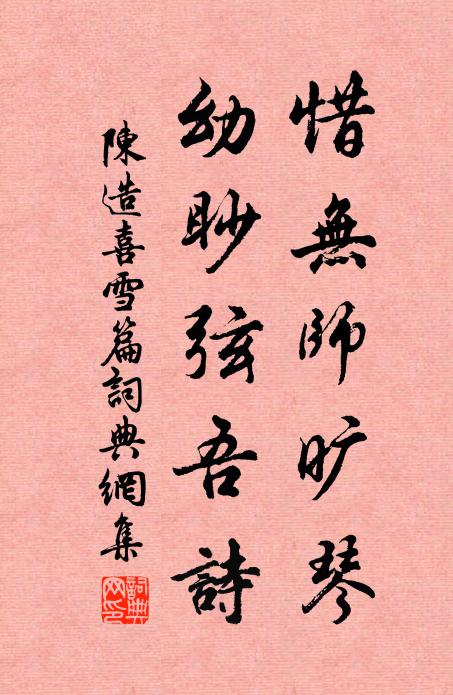 惜無師旷琴
幼眇弦吾詩
陳造喜雪篇詞典網集
詞典网印